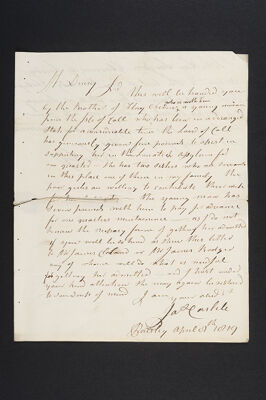 Mr Drury Sir This will be handed you
by the Mother of Mary
who is with him
a young woman
from the Isle of Coll who has been in a deranged
state for a considerable time the Laird of Coll
has generously given four pounds to assist in
supporting her in the Lunatic Asylum for
a quarter She has two sisters who are servants
in this place one of them in my family, the
poor girls are willing to contribute their mite
The young man has
seven pounds with him to pay for
one quarters maintenance as I do not
know the necessary form of getting her admitted
if you will be so kind as show this letter
to Mr James or Mr James
any of whom will do what is needful
for getting her admitted and I hope under
your kind attention she may again be restored
to soundness of mind
I am yours
Jas Carlile
Paisley April 8th 1819